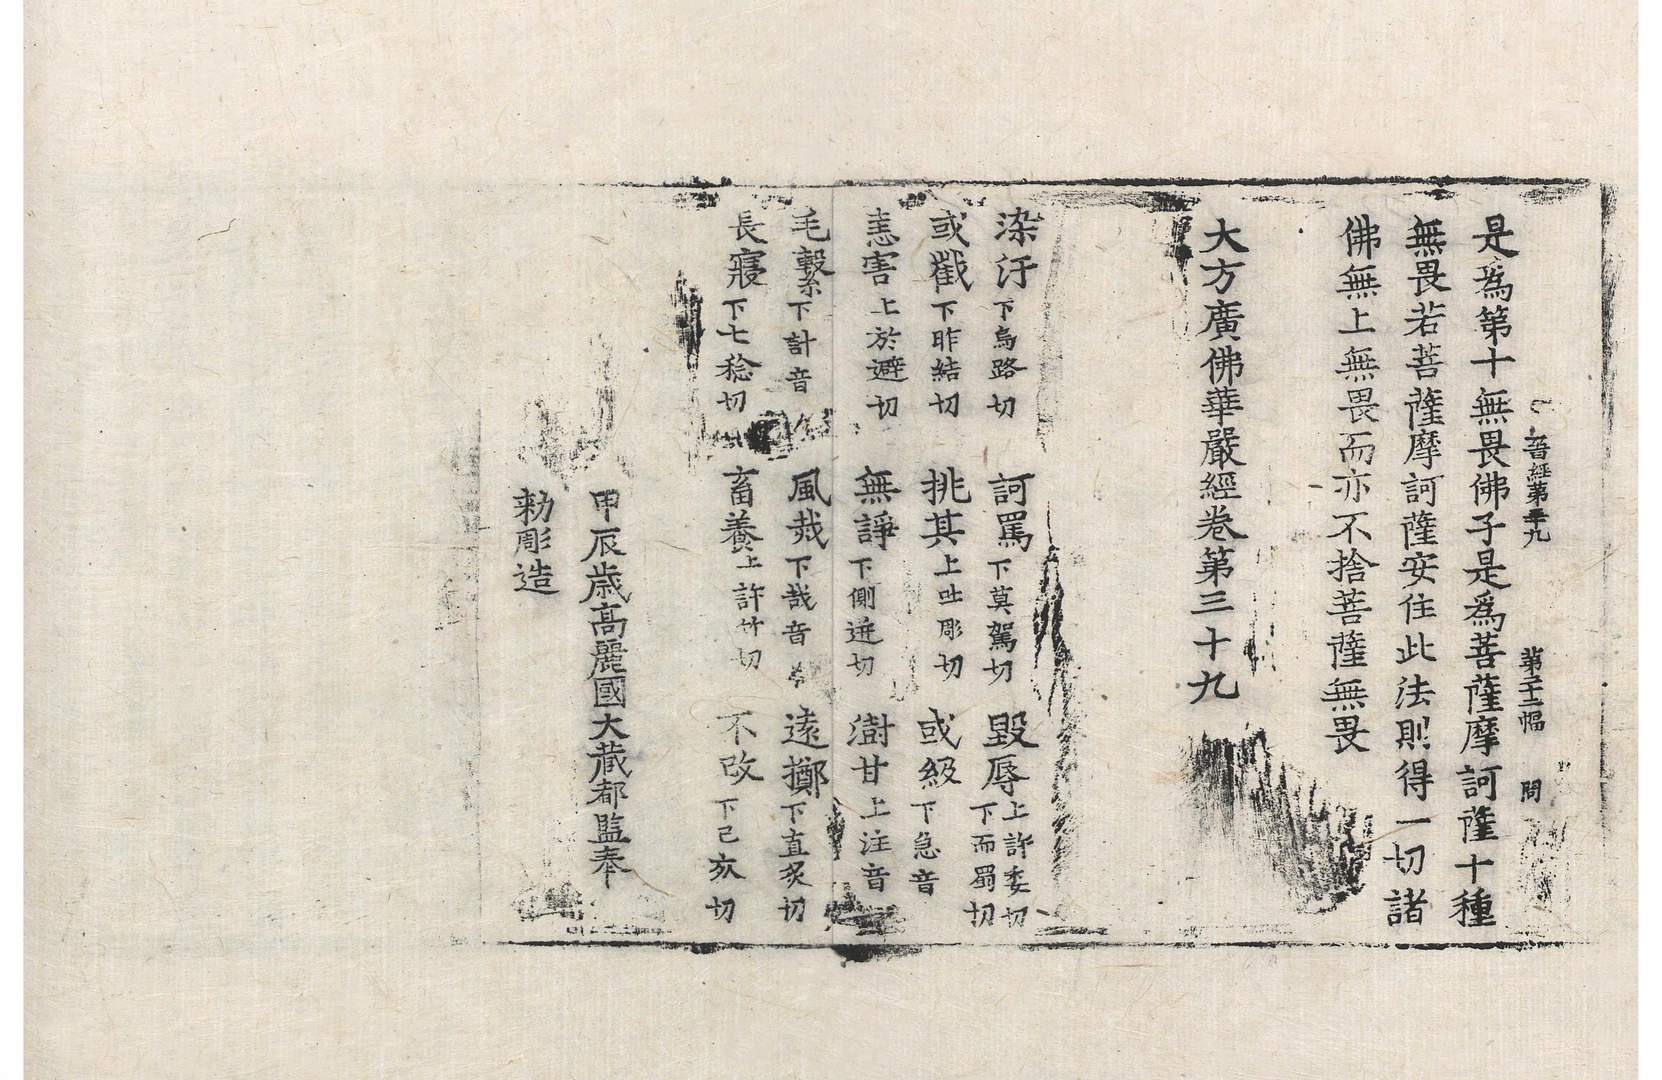 晉經第三十九 第二十二幅 問
是爲第十無畏佛子是爲菩薩摩訶薩十種
無畏若菩薩摩訶薩安住此法則得一切諸
佛無上無畏而亦不捨菩薩無畏
大方廣佛華嚴經卷第三十九
染汙下烏路切 訶罵下莫駕切 毀辱上許委切下而蜀切
或截下昨結切 挑其上吐彫切 或級下急音
恚害上於避切 無諍下側迸切 澍甘上注音
毛繫下計音 風烖下哉音 遠擲下直炙切
長寢下七稔切 畜養上許竹切 不攺下己亥切
甲辰歲高麗國大藏都監奉
勑彫造